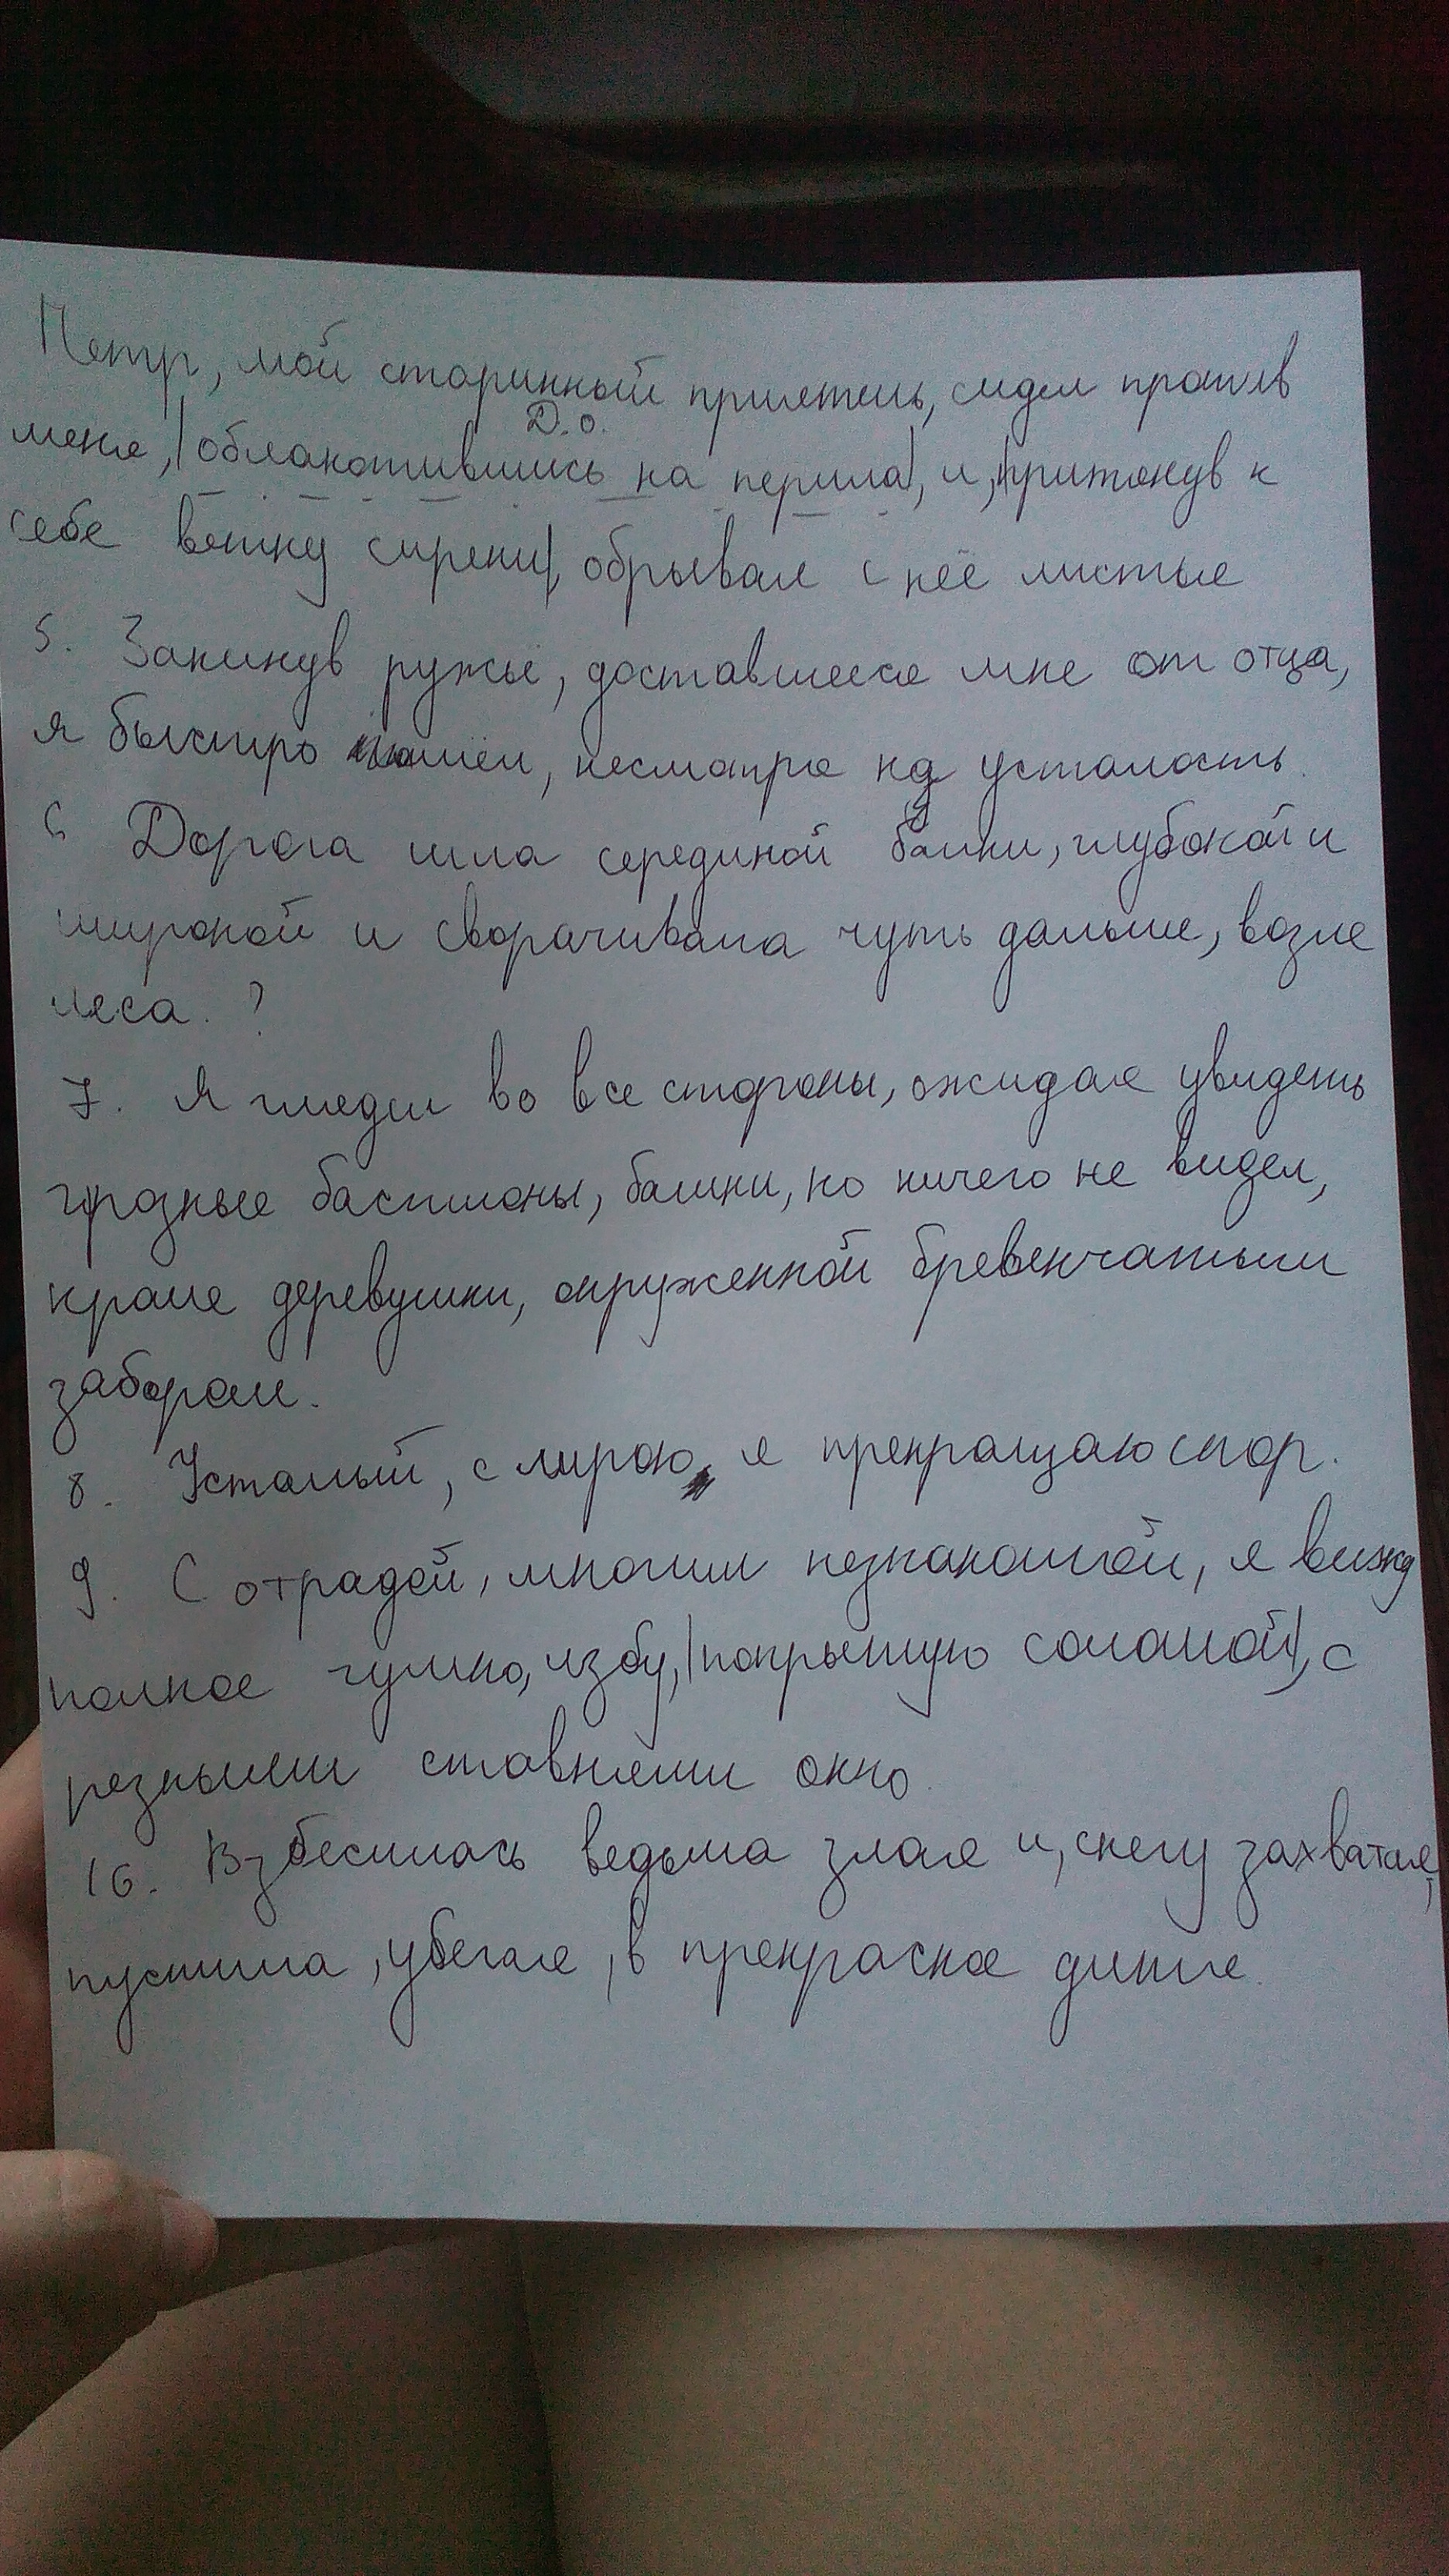 Петр, мой старинный приятель, сидел против
Д.о.
меня, |облакотившись на перила|, и, |притянув к
себе ветку сирени|, обрывал с неё листья
5. Закинув ружьё, доставшееся мне от отца,
я быстро пошёл, несмотря на усталость.
6 Дорога шла серединой балки, глубокой и
широкой и сворачивала чуть дальше, возле
леса. ?
7. Я глядел во все стороны, ожидая увидеть
грозные бастионы, башни, но ничего не видел,
кроме деревушки, окруженной бревенчатым
забором.
8. Усталый, с лирою, я прекращаю спор.
9. С отрадой, многим незнакомой, я вижу
полное гумно, избу, |покрытую соломой|, с
резными ставнями окно.
16. Взбесилась ведьма злая и, снегу захватая,
пустила, убегая, в прекрасное дитя.